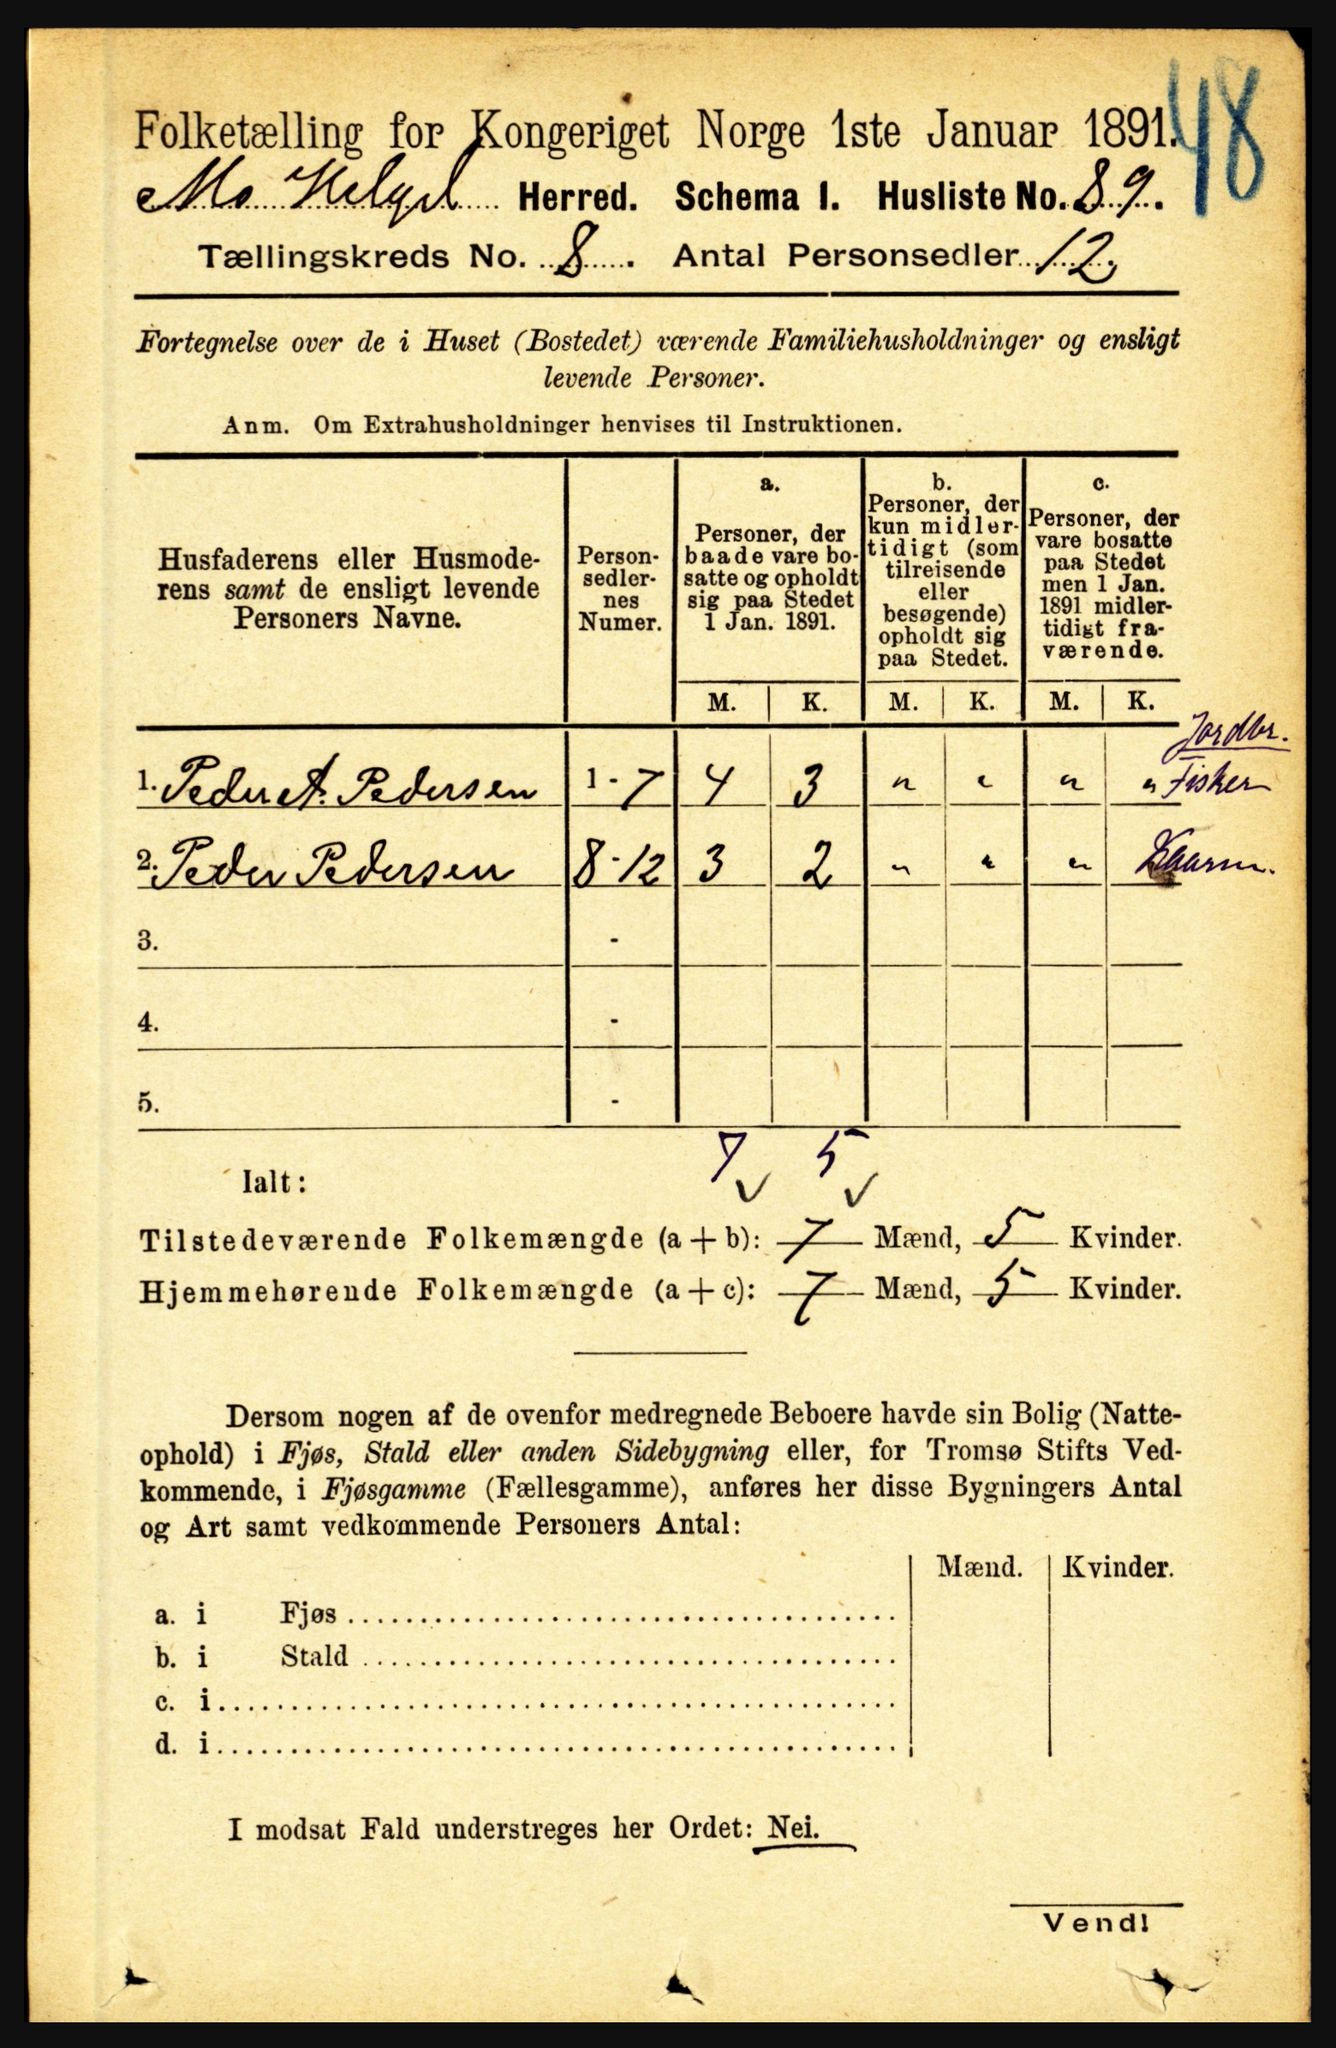 48
Folketælling for Kongeriget Norge 1ste Januar 1891.
Mo Helgel Herred. Schema I. Husliste No. 89.
Tællingskreds No. 8. Antal Personsedler 12,
Fortegnelse over de i Huset (Bostedet) værende Familiehusholdninger og ensligt
levende Personer.
Anm. Om Extrahusholdninger henvises til Instruktionen.
Husfaderens eller Husmode-
rens samt de ensligt levende
Personers Navne.
Person-
sedler-
nes
Numer.
a.
Personer, der
baade vare bo-
satte og opholdt
sig paa Stedet
1 Jan. 1891.
b.
Personer, der
kun midler-
tidigt (som
tilreisende
eller
besøgende)
opholdt sig
paa Stedet.
c.
Personer, der
vare bosatte
paa Stedet
men 1 Jan.
1891 midler-
tidigt fra-
værende.
M. K. M. K. M. K.
Jordbr.
1. Peder A. Pedersen 1 - 7 4 3 " " " " Fisker
2. Peder Pedersen 8 - 12 3 2 " " "
3. -
4. -
5. -
7 5
Ialt:
Tilstedeværende Folkemængde (a + b): 7 Mænd, 5 Kvinder.
Hjemmehørende Folkemængde (a + c): 7 Mænd, 5 Kvinder.
Dersom nogen af de ovenfor medregnede Beboere havde sin Bolig (Natte-
ophold) i Fjøs, Stald eller anden Sidebygning eller, for Tromsø Stifts Ved-
kommende, i Fjøsgamme (Fællesgamme), anføres her disse Bygningers Antal
og Art samt vedkommende Personers Antal:
Mænd. Kvinder.
a. i Fjøs
b. i Stald
c. i
d. i
I modsat Fald understreges her Ordet: Nei.
Vend!